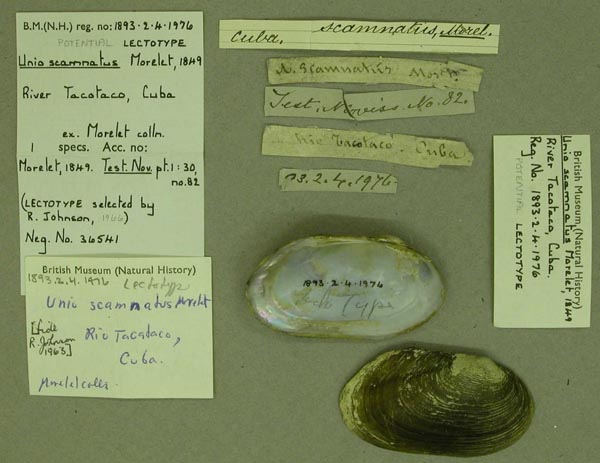 B.M.(N.H.) reg. no: 1893·2·4·1976
POTENTIAL LECTOTYPE
Unio scamnatus Morelet, 1849
River Tacotaco, Cuba
ex. Morelet colln.
1 specs. Acc. no:
Morelet, 1849. Test. Nov. pt.1: 30,
no.82
(LECTOTYPE selected by
R. Johnson, 1966)
Neg. No. 36541
British Museum (Natural History)
1893.2.4.1976 Lectotype
Unio scamnatus Morelet
[fide
R. Johnson
1963]
Rio Tacataco,
Cuba.
Morelet colln.
Cuba. scamnatus, Morel.
U. Scamnatus Morlt.
Test. Noviss. No. 82.
Rio Tacotaco. Cuba
93.2.4.1976.
1893·2·4·1976
Type
British Museum (Natural History)
Unio scamnatus Morelet, 1849
River Tacotaco, Cuba.
Reg. No. 1893·2·4·1976
POTENTIAL LECTOTYPE